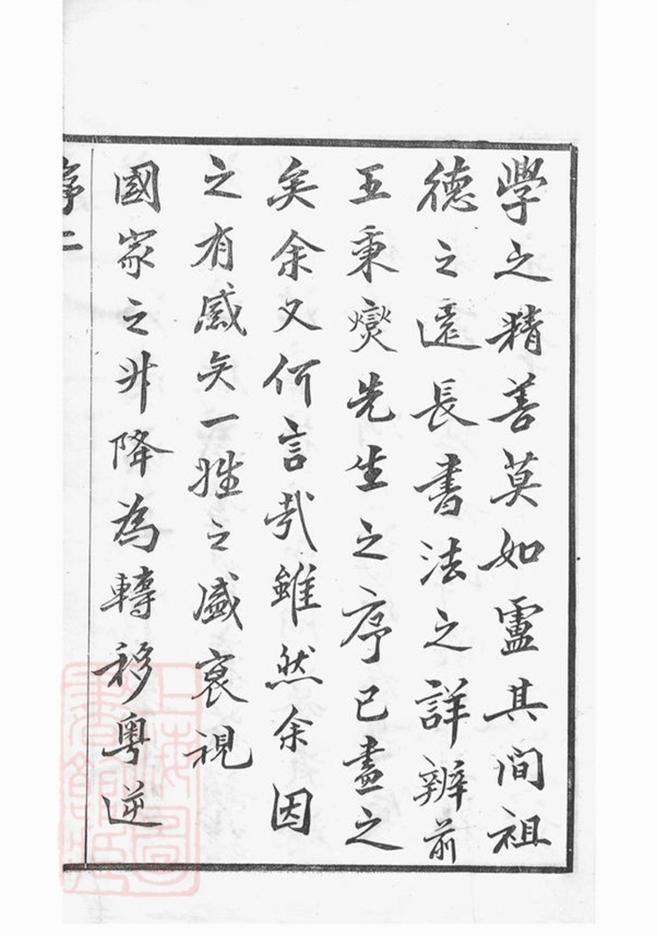 學之精善莫如盧其間祖
德之遠長書法之詳辨前
王秉爕先生之序已盡之
矣余又何言哉雖然余因
之有感矣一姓之盛衰視
國家之升降為轉移粵逆
序二